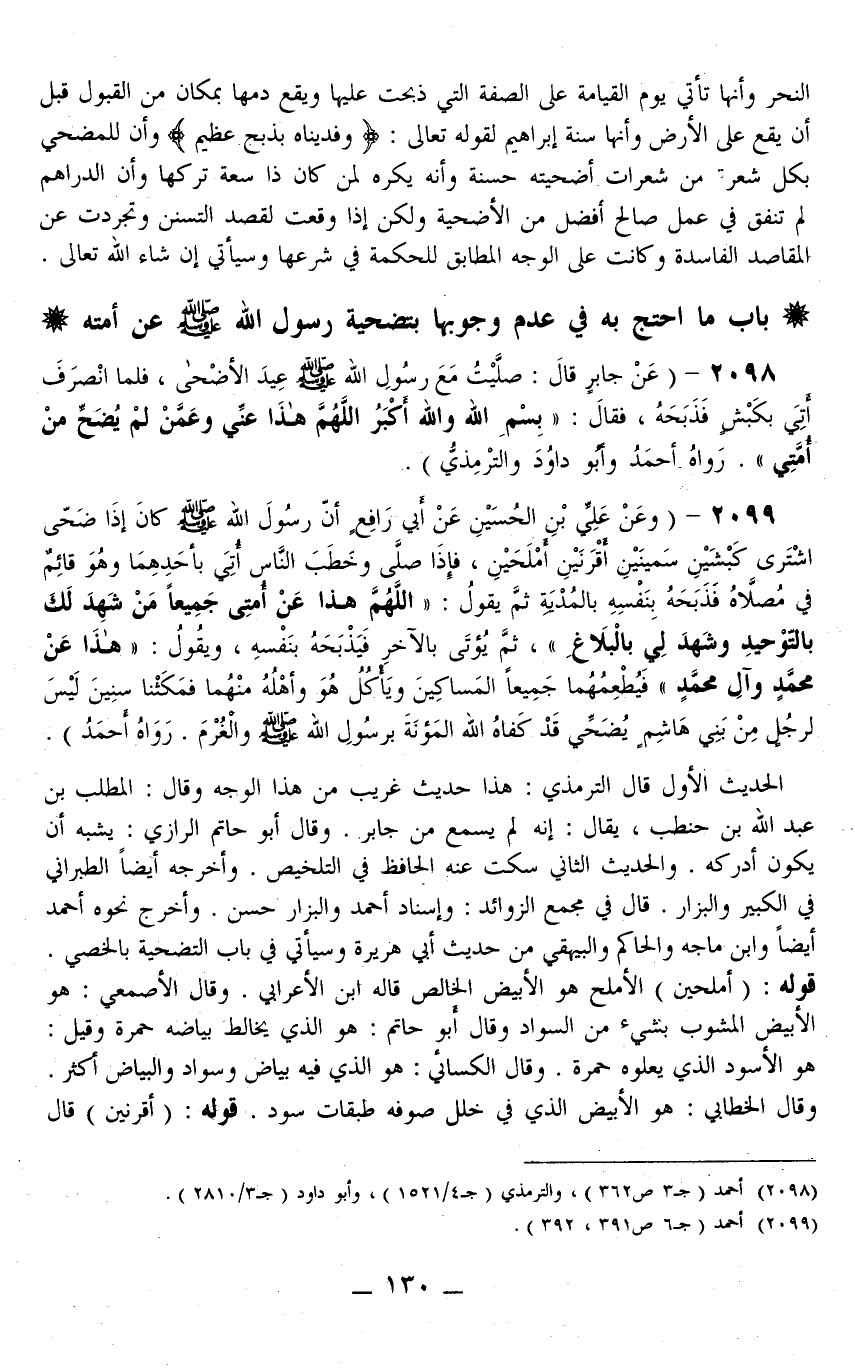 النحر وأنها تأتي يوم القيامة على الصفة التي ذبحت عليها ويقع دمها بمكان من القبول قبل
أن يقع على الأرض وأنها سنة إبراهيم لقوله تعالى : ﴿ وفديناه بذبح عظيم ﴾ وأن للمضحي
بكل شعرة من شعرات أضحيته حسنة وأنه يكره لمن كان ذا سعة تركها وأن الدراهم
لم تنفق في عمل صالح أفضل من الأضحية ولكن إذا وقعت لقصد التسنن وتجردت عن
المقاصد الفاسدة وكانت على الوجه المطابق للحكمة في شرعها وسيأتي إن شاء الله تعالى .
❋ باب ما احتج به في عدم وجوبها بتضحية رسول الله ﷺ عن أمته ❋
٢٠٩٨ - ( عَنْ جابرٍ قالَ : صلَّيْتُ مَعَ رسُولِ الله ﷺ عِيدَ الأضْحٰى ، فلما انْصرَفَ
أُتِي بكَبْشٍ فَذَبَحَهُ ، فقالَ : « بِسْمِ الله والله أكْبَرُ اللَّهُمَّ هٰذا عنِّي وعَمَّنْ لمْ يُضَحِّ منْ
أُمَّتِي » . رَواهُ أحمَدُ وأبُو داوُدَ والترْمذيُّ ) .
٢٠٩٩ - ( وعَنْ عَلِيِّ بْنِ الحُسَيْنِ عَنْ أبي رَافِعٍ أنّ رسُولَ الله ﷺ كانَ إذَا ضَحّى
اشْتَرى كَبْشَيْنِ سَمِينَيْنِ أقْرَنَيْنِ أمْلَحَيْنِ ، فإِذَا صلَّى وخَطَبَ النَّاس أُتِيَ بأحَدِهِمَا وهُوَ قائِمٌ
في مُصلَّاهُ فَذَبَحَهُ بِنَفْسِهِ بالمُدْيَةِ ثمَّ يقولُ : « اللَّهُمَّ هـذا عَنْ أُمتِى جَمِيعاً مَنْ شَهِدَ لَكَ
بالتّوْحِيدِ وشَهدَ لِي بالْبَلَاغِ » ، ثمَّ يُؤتَى بالآخرِ فَيَذْبَحَهُ بنَفْسهِ ، ويقُولُ : « هـٰذَا عَنْ
محمَّدٍ وآلِ محمَّدٍ » فَيُطْعِمُهُما جَمِيعاً المَساكِينَ ويَأْكُلُ هُوَ وأهْلُهُ منْهُما فمَكَثْنا سنِينَ لَيْسَ
لرجُلٍ مِنْ بَنِي هَاشِمٍ يُضَحِّي قَدْ كَفاهُ الله المَؤنَةَ برسُولِ الله ﷺ والْغُرْمَ . رَوَاهُ أحمَدُ ) .
الحديث الأول قال الترمذي : هذا حديث غريب من هذا الوجه وقال : المطلب بن
عبد الله بن حنطب ، يقال : إنه لم يسمع من جابر . وقال أبو حاتم الرازي : يشبه أن
يكون أدركه . والحديث الثاني سكت عنه الحافظ في التلخيص . وأخرجه أيضاً الطبراني
في الكبير والبزار . قال في مجمع الزوائد : وإسناد أحمد والبزار حسن . وأخرج نحوه أحمد
أيضاً وابن ماجه والحاكم والبيهقي من حديث أبي هريرة وسيأتي في باب التضحية بالخصي .
قوله : ( أملحين ) الأملح هو الأبيض الخالص قاله ابن الأعرابي . وقال الأصمعي : هو
الأبيض المشوب بشيء من السواد وقال أبو حاتم : هو الذي يخالط بياضه حمرة وقيل :
هو الأسود الذي يعلوه حمرة . وقال الكسائي : هو الذي فيه بياض وسواد والبياض أكثر .
وقال الخطابي : هو الأبيض الذي في خلل صوفه طبقات سود . قوله : ( أقرنين ) قال
(٢٠٩٨) أحمد ( جـ٣ ص٣٦٢ ) ، والترمذي ( جـ١٥٢١/٤ ) ، وأبو داود ( جـ٢٨١٠/٣ ) .
(٢٠٩٩) أحمد ( جـ٦ ص٣٩١ ، ٣٩٢ ) .
– ١٣٠ –